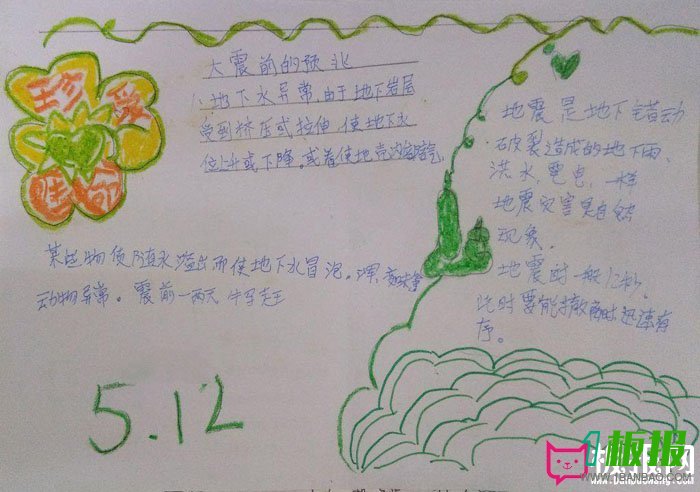 珍爱
生命
大震前的预兆
1、地下水异常,由于地下岩层
受到挤压或拉伸,使地下水
位上升或下降。或者使地壳内部气
某些物质随水溢出而使地下水冒泡。浑
动物异常。震前一两天
5.12
地震是地下错动
破裂造成的地下雨、
洪水、雷电,一样
地震灾害是自然
现象。
地震时一般12秒。
此时要能迅速有
序。
1板报
WWW.1BANBAO.COM